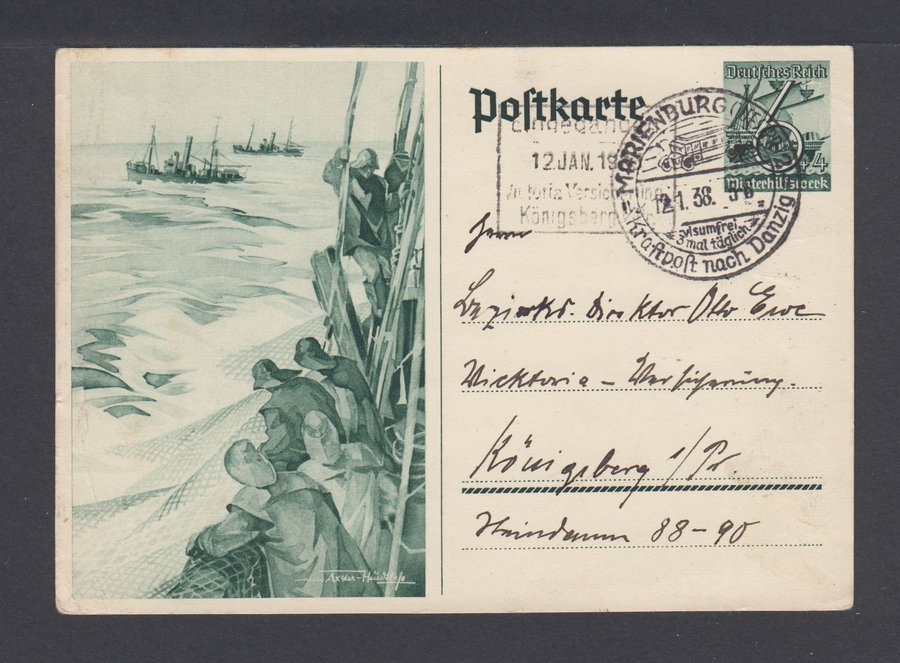 Postkarte
Deutsches Reich
6+4
Winterhilfswerk
MARIENBURG
12.1.38.
Visumfrei
3 mal täglich
Kraftpost nach Danzig
Eingegangen
12.JAN.19
Königsberg
Herrn
Bezirks-Direktor Otto Ewe
Vicktoria - Versicherung.
Königsberg i/Pr.
Steindamm 88-90
Axster-Heudtlaß